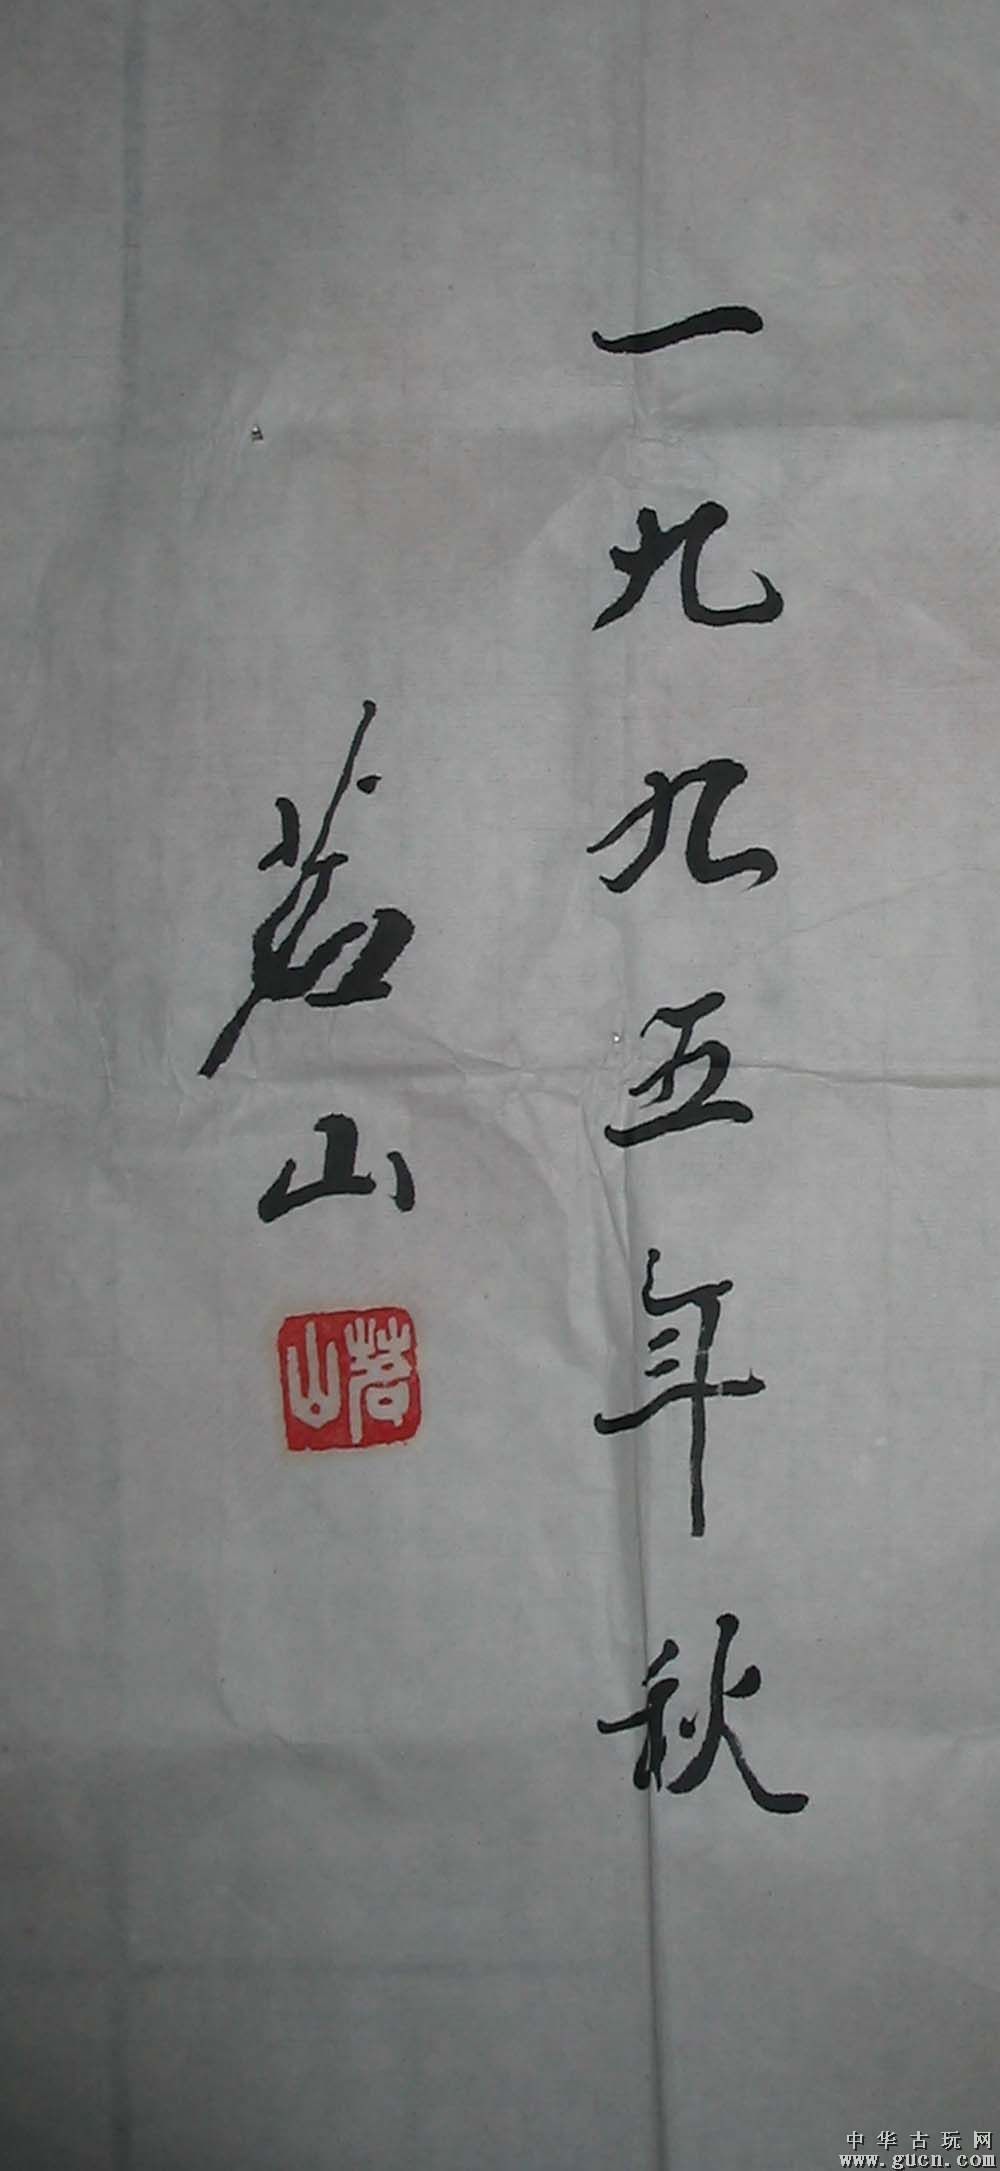 一九九五年秋
茗山
茗山
中华古玩网
www.gucn.com